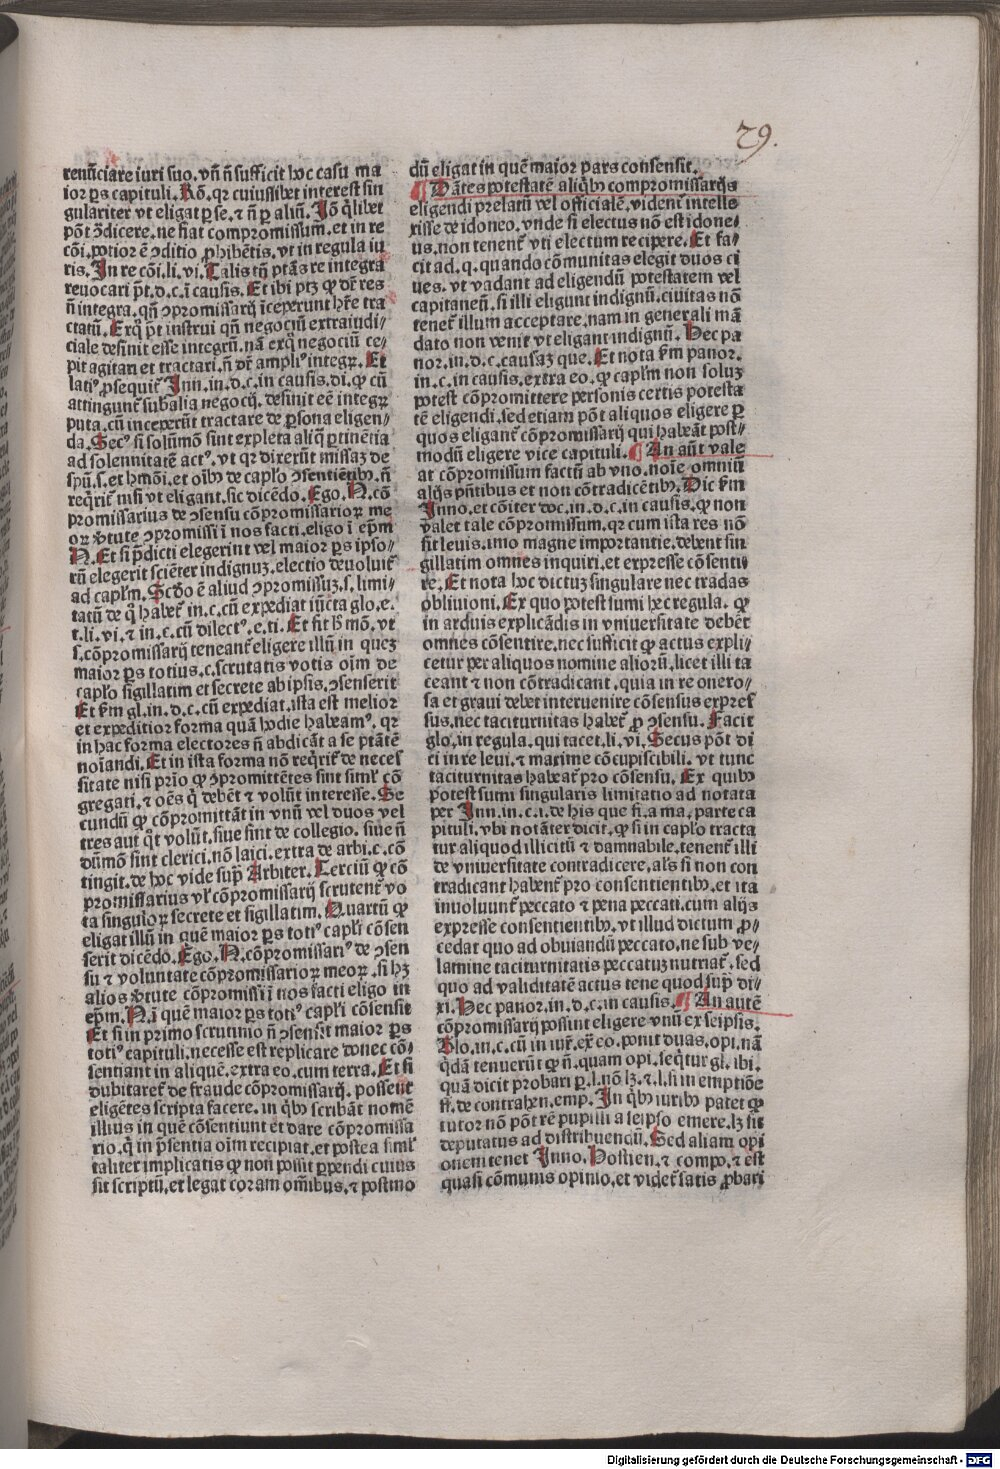 29.
renūciare iuri suo. vñ ñ sufficit hoc casu ma
ior ps capituli. Rō. qr cuiuslibet interest sin
gulariter vt eligat p se. ⁊ ñ p aliū. Iō qͥlibet
pōt ꝯdicere. ne fiat compromissum. et in re
cōi. potior ē ꝯditio ꝓhibētis. vt in regula iu
ris. In re cōi. li. vi. Talis tñ ptās re integra
reuocari pt. d. c. ī causis. Et ibi ptꝫ ꝙ dr̄ res
ñ integra. qñ ꝯpromissarij īceperunt hr̄e tra
ctatū. Ex quo pt instrui qñ negociū extraiudi⸗
ciale desinit esse integrū. nā ex quo negociū ce⸗
pit agitari et tractari. ñ dr̄ ampliꝰ integꝝ. Et
latiꝰ ꝓsequit̄ Inn. in. d. c. in causis. di. ꝙ cū
attingunt̄ sub̄alia negocij. desinit eē integꝝ
puta. cū inceperūt tractare de ꝑsona eligen⸗
da. Secꝰ si solūmō sint expleta aliq̄ ꝑtinētia
ad solennitatē actꝰ. vt qr dixerūt missaꝫ de
spū. s. et hmōi. et oībꝰ de capl̄o ꝯsentiētibꝰ. ñ
reqͥrit̄ nisi vt eligant. sic dicēdo. Ego. N. cō
promissarius de ꝯsensu cōpromissarioꝝ me
oꝝ ꝟtute ꝯpromissi ī nos facti. eligo ī ep̄m
N. Et si p̄dicti elegerint vel maior ps ipso⸗
rū elegerit sciēter indignuꝫ. electio deuoluit̄
ad capl̄m. Scd̄o ē aliud ꝯpromissuꝫ. s. limi⸗
tatū de qͦ habet̄ in. c. cū expediat iūcta glo. e.
t. li. vi. ⁊ in. c. cū dilectꝰ. e. ti. Et fit h̄ mō. vt
s. cōpromissarij teneant̄ eligere illū in queꝫ
maior ps totius. c. scrutatis votis oīm de
capl̄o sigillatim et secrete ab ipsis. ꝯsenserit
Et ẜm gl. in. d. c. cū expediat. ista est melior
et expeditior forma quā hodie habeamꝰ. qr
in hac forma electores ñ abdicāt a se ptātē
noīandi. Et in ista forma nō reqͥrit̄ de neces̄
sitate nisi prīo ꝙ ꝯpromittētes sint siml̄ cō
gregati. ⁊ oēs q̄ debēt ⁊ volūt interesse. Se
cundū ꝙ cōpromittāt in vnū vel duos vel
tres aut qͦt volūt. siue sint de collegio. siue ñ
dūmō sint clerici. nō laici. extra de arbi. c. cō
tingit. de hoc vide sup̄ Arbiter. Terciū ꝙ cō
promissarius vl̄ cōpromissarij scrutent̄ vo
ta singuloꝝ secrete et sigillatim. Quartū ꝙ
eligat illū in quē maior ps totiꝰ capl̄i cōsen
serit dicēdo. Ego. N. cōpromissariꝰ de ꝯsen
su ⁊ voluntate cōpromissarioꝝ meoꝝ. si hꝫ
alios ꝟtute cōpromissi ī nos facti eligo in
ep̄m. N. ī quē maior ps totiꝰ capl̄i cōsensit
Et si in primo scrutinio ñ ꝯsensit maior ps
totiꝰ capituli. necesse est replicare donec cō⸗
sentiant in aliquē. extra eo. cum terra. Et si
dubitaret̄ de fraude cōpromissarij. possent
eligētes scripta facere. in qͥbꝰ scribāt nomē
illius in quē cōsentiunt et dare cōpromissa
rio. qͥ in p̄sentia oīm recipiat. et postea siml̄
taliter implicatis ꝙ non possit ꝑpendi cuius
sit scriptū. et legat coram om̄ibus. ⁊ postmo
dū eligat in quē maior pars consensit.
¶ Dātes potestatē aliqͥbꝰ compromissarijs
eligendi prelatū vel officialē. vident̄ intelle
xisse de idoneo. vnde si electus nō est idone⸗
us. non tenent̄ vti electum recipere. Et fa⸗
cit ad. q. quando cōmunitas elegit duos ci
ues. vt vadant ad eligendū potestatem vel
capitaneū. si illi eligunt indignū. ciuitas nō
tenet̄ illum acceptare. nam in generali mā
dato non venit vt eligant indignū. Hec pa
nor. in. d. c. causaꝫ que. Et nota ẜm panor.
in. c. in causis. extra eo. ꝙ capl̄m non soluꝫ
potest cōpromittere personis certis potesta
tē eligendi. sed etiam pōt aliquos eligere ꝑ
quos eligant̄ cōpromissarij qui habeāt post⸗
modū eligere vice capituli. ¶ An aūt vale
at cōpromissum factū ab vno. noīe omniū
alijs pn̄tibus et non cōtradicētibꝰ. Dic ẜm
Inno. et cōiter doc. in. d. c. in causis. ꝙ non
valet tale cōpromissum. qr cum ista res nō
sit leuis. imo magne importantie. debent sin
gillatim omnes inquiri. et expresse cōsenti⸗
re. Et nota hoc dictuꝫ singulare nec tradas
obliuioni. Ex quo potest sumi hec regula. ꝙ
in arduis explicādis in vniuersitate debēt
omnes cōsentire. nec sufficit ꝙ actus expli⸗
cetur per aliquos nomine alioꝝ. licet illi ta
ceant ⁊ non cōtradicant. quia in re onero⸗
sa et graui debet interuenire cōsensus expres̄
sus. nec taciturnitas habet̄ ꝓ ꝯsensu. Facit
glo. in regula. qui tacet. li. vi. Secus pōt di
ci in re leui. ⁊ maxime cōcupiscibili. vt tunc
taciturnitas habeat̄ pro cōsensu. Ex quibꝰ
potest sumi singularis limitatio ad notata
per Inn. in. c. i. de his que fi. a ma. parte ca
pituli. vbi notāter dicit. ꝙ si in capl̄o tracta
tur aliquod illicitū ⁊ damnabile. tenent̄ illi
de vniuersitate contradicere. al̄s si non con
tradicant habent̄ pro consentientibꝰ. et ita
inuoluunt̄ peccato ⁊ pena peccati. cum alijs
expresse consentientibꝰ. vt illud dictum ꝓ⸗
cedat quo ad obuiandū peccato. ne sub ve⸗
lamine taciturnitatis peccatuꝫ nutriat̄. sed
quo ad validitatē actus tene quod sup̄ di⸗
xi. Hec panor. in. d. c. in causis. ¶ An autē
cōpromissarij possint eligere vnū ex seipsis.
Glo. in. c. cū in iur̄. ex̄. eo. ponit duas. opi. nā
qͥdā tenuerūt ꝙ ñ. quam opi. seqͥtur gl. ibi.
quā dicit probari ꝑ. l. nō lꝫ. ⁊. l. si in emptiōe
ff. de contrahen. emp. In qͥbꝰ iuribꝰ patet ꝙ
tutor nō pōt rē pupilli a seipso emere. lꝫ sit
deputatus ad distribuendū. Sed aliam opi
onem tenet Inno. Hostien. ⁊ compo. ⁊ est
quasi cōmunis opinio. et videt̄ satis ꝓbari
Digitalisierung gefördert durch die Deutsche Forschungsgemeinschaft - DFG